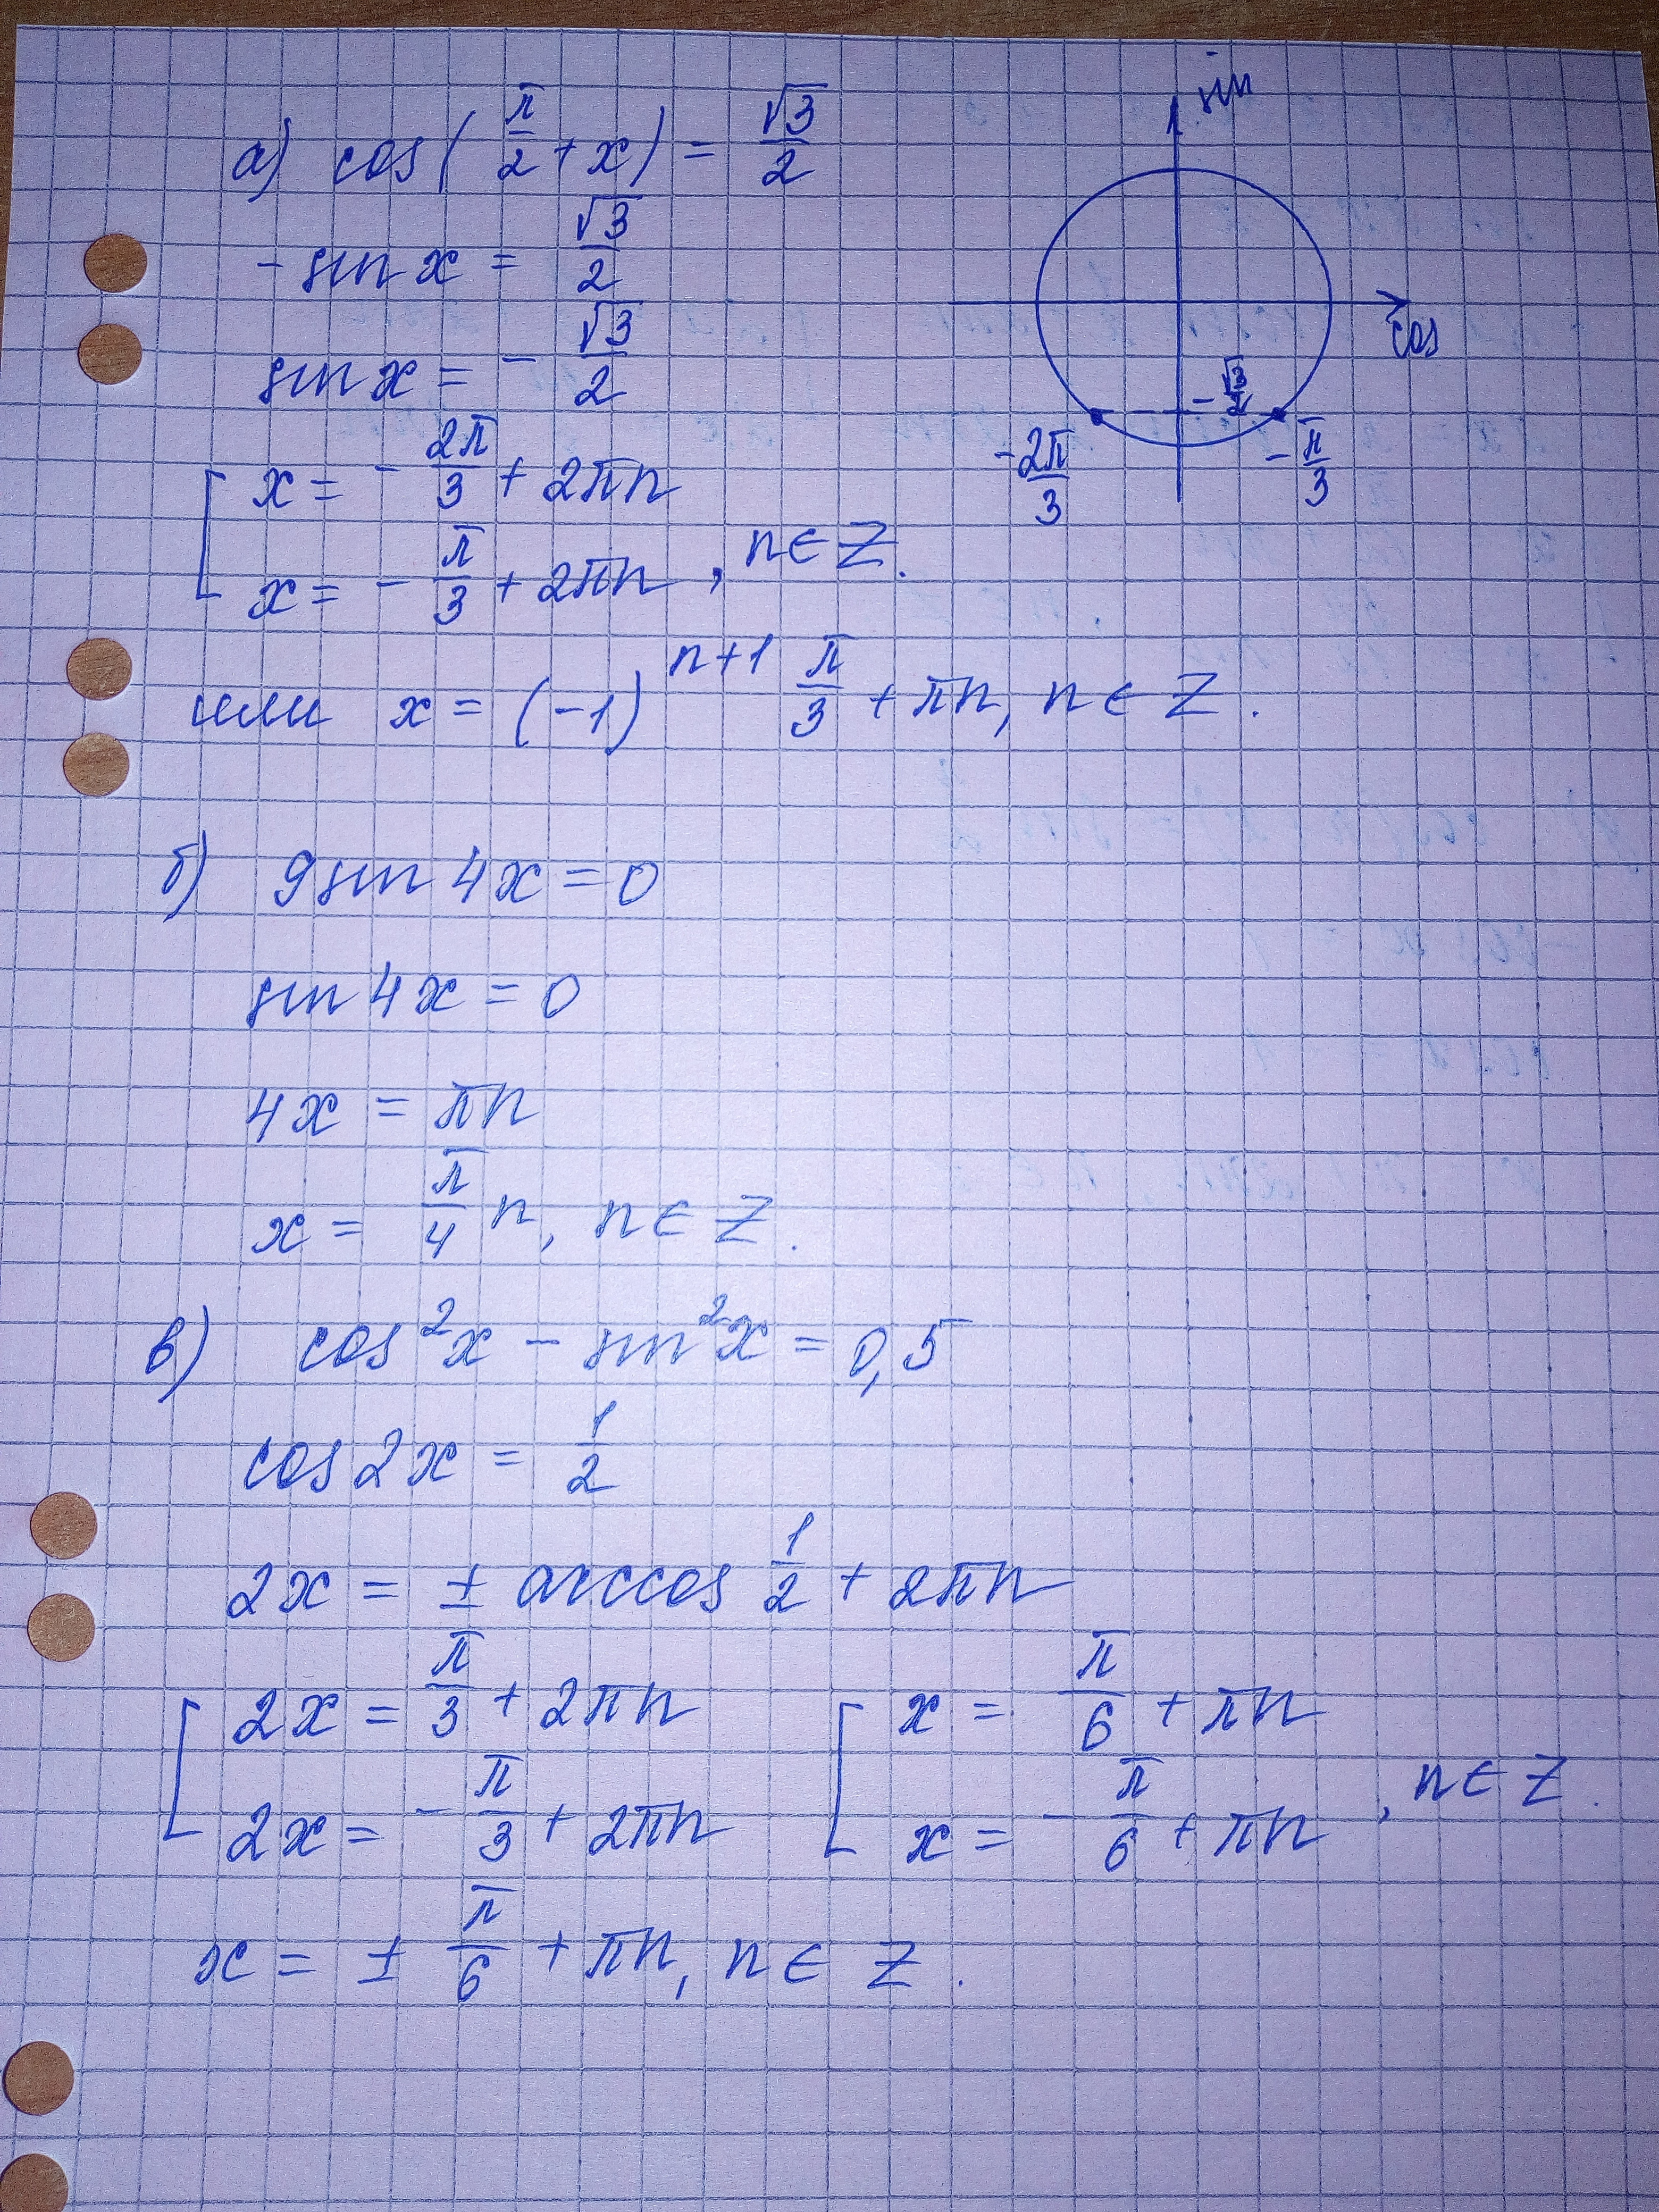 а) cos(π/2 + x) = √3/2
- sin x = √3/2
sin x = - √3/2
x = - 2π/3 + 2πn
x = - π/3 + 2πn , n ∈ Z.
или x = (-1)^(n+1) π/3 + πn, n ∈ Z.
sin
cos
- √3/2
- 2π/3
- π/3
б) 9 sin 4x = 0
sin 4x = 0
4x = πn
x = π/4 n, n ∈ Z.
в) cos²x - sin²x = 0,5
cos 2x = 1/2
2x = ± arccos 1/2 + 2πn
2x = π/3 + 2πn
2x = - π/3 + 2πn
x = π/6 + πn
x = - π/6 + πn , n ∈ Z.
x = ± π/6 + πn, n ∈ Z.